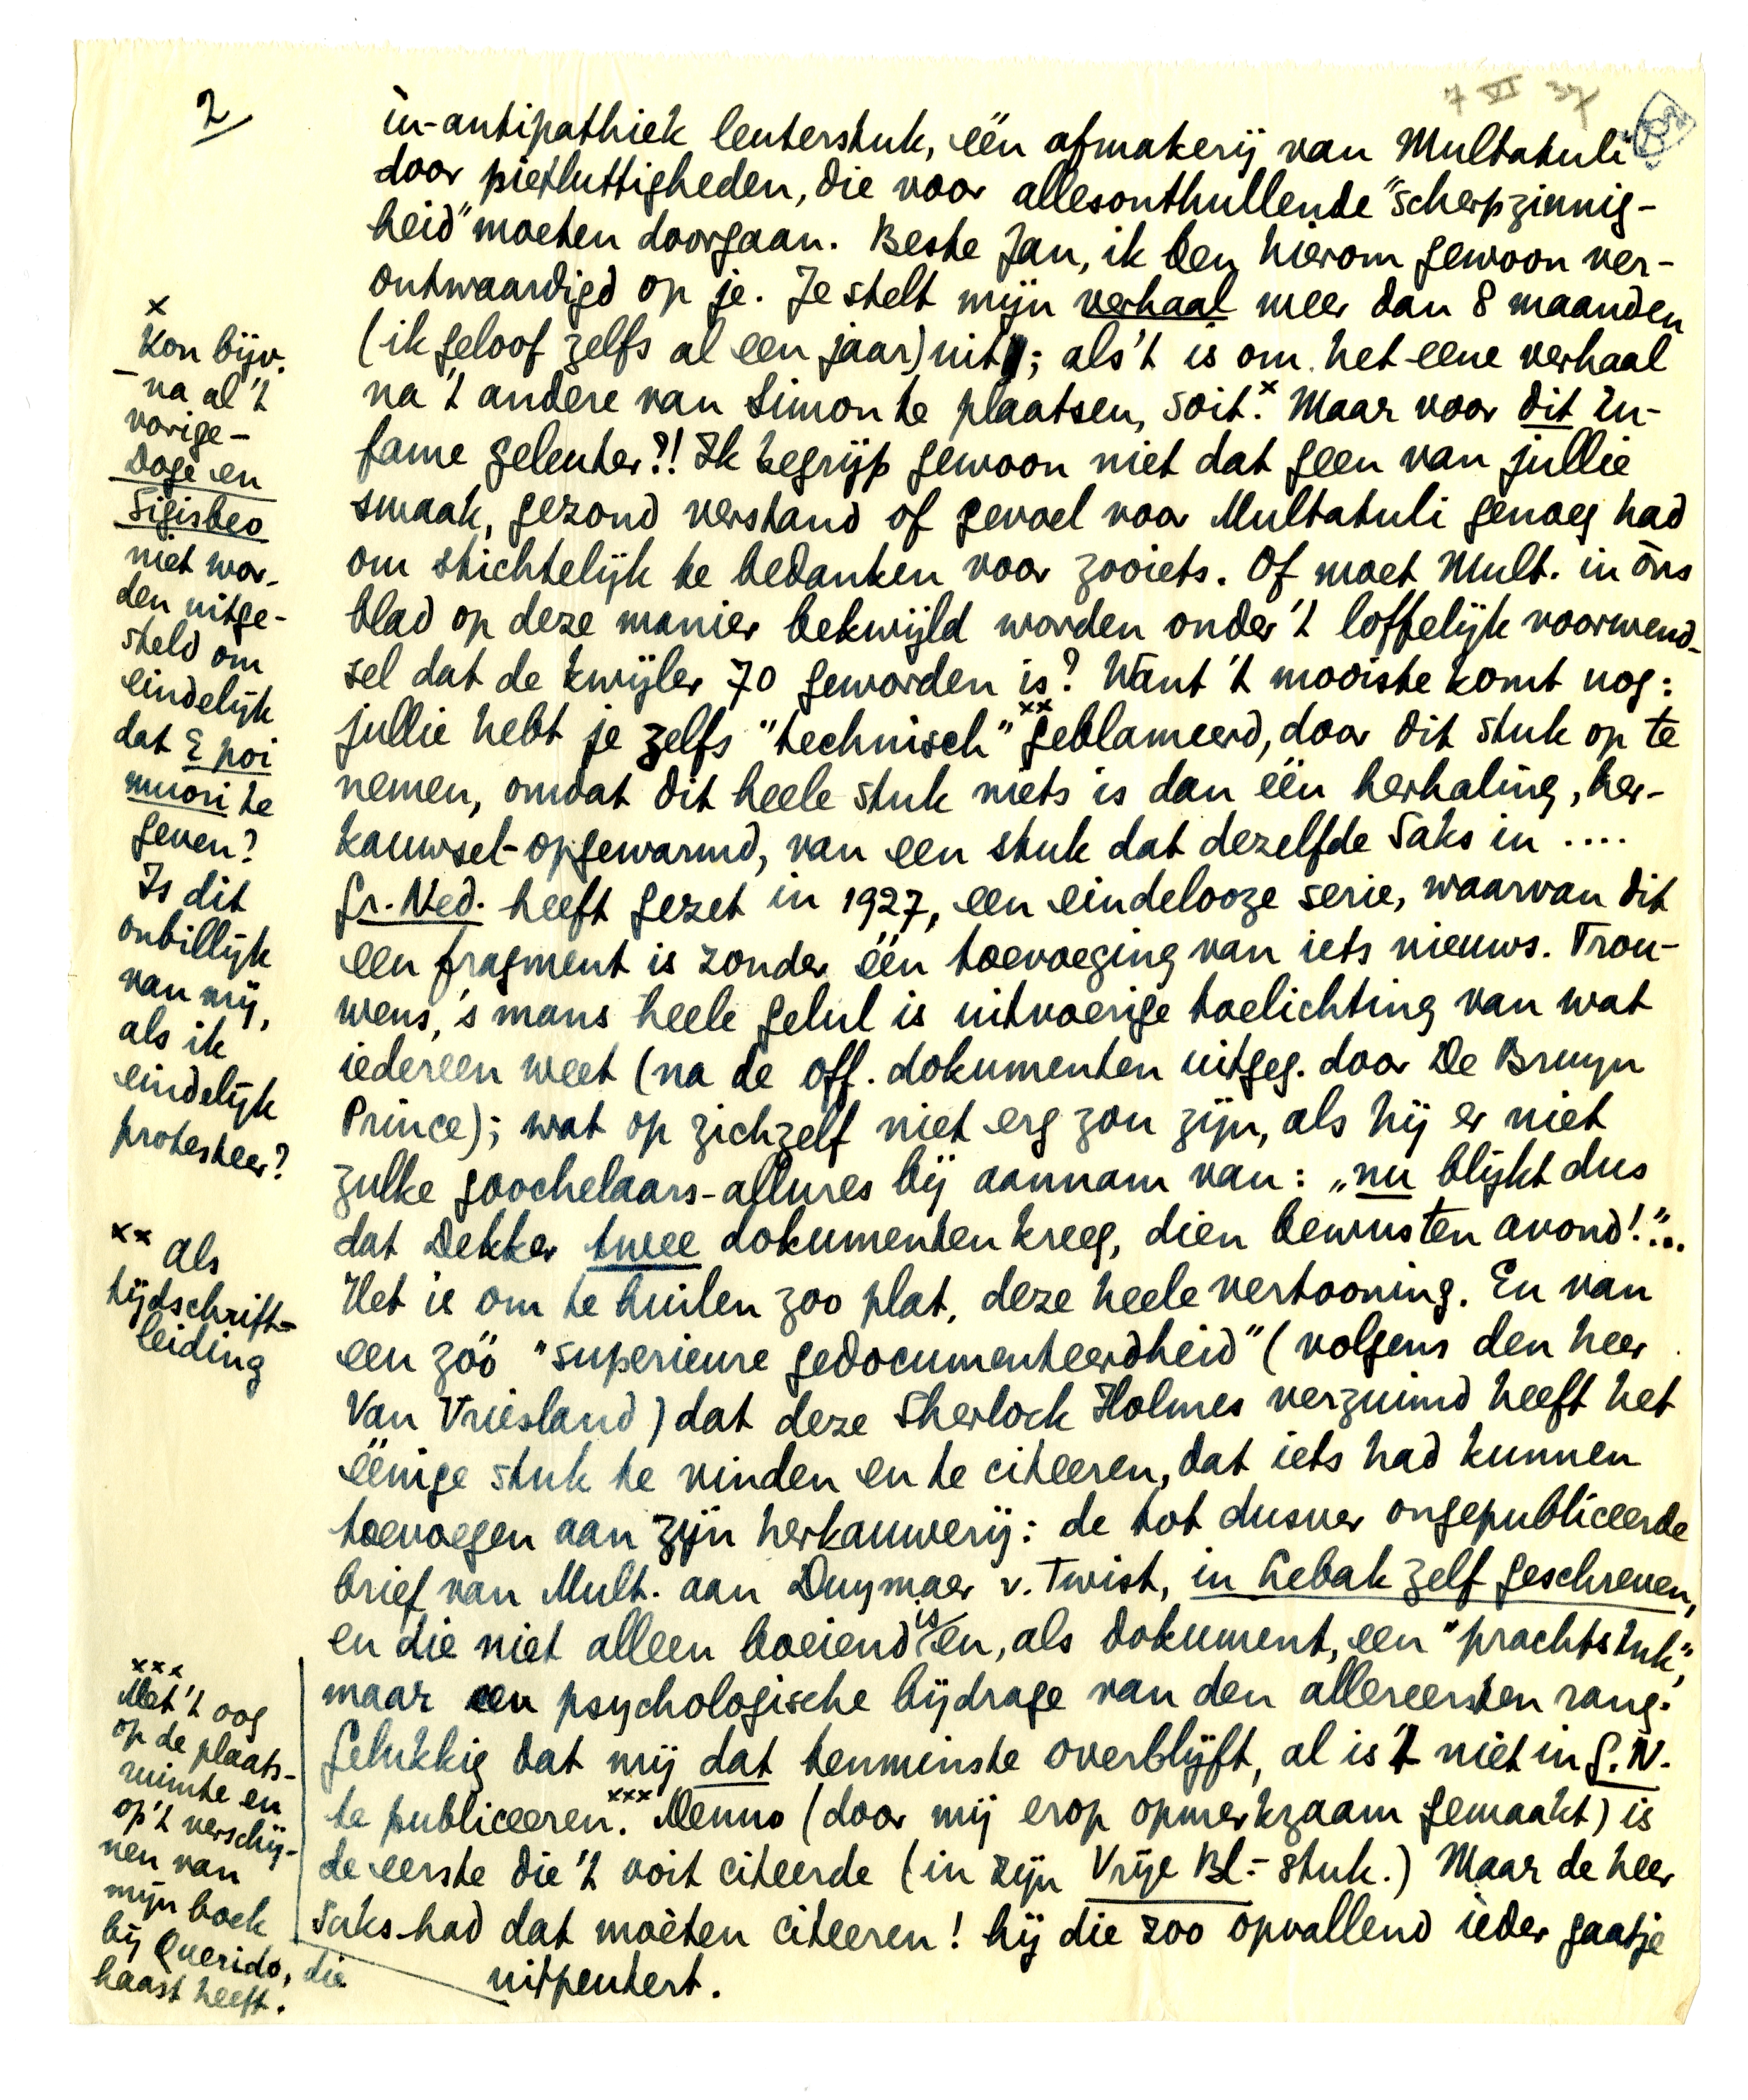 2/
7 VI 37
in-antipathiek leuterstuk, één afmakerij van Multatuli
door pietluttigheden, die voor allesonthullende "scherpzinnig-
heid" moeten doorgaan. Beste Jan, ik ben hierom gewoon ver-
ontwaardigd op je. Je stelt mijn verhaal meer dan 8 maanden
(ik geloof zelfs al een jaar) uit; als 't is om het eene verhaal
na 't andere van Simon te plaatsen, soit.x Maar voor dit in-
fame geleuter?! Ik begrijp gewoon niet dat geen van jullie
smaak, gezond verstand of gevoel voor Multatuli genoeg had
om stichtelijk te bedanken voor zooiets. Of moet Mult. in òns
blad op deze manier bekwijld worden onder 't loffelijk voorwend-
sel dat de kwijler 70 geworden is? Want 't mooiste komt nog:
jullie hebt je zelfs "technisch"xx geblameerd, door dit stuk op te
nemen, omdat dit heele stuk niets is dan één herhaling, her-
kauwsel-opgewarmd, van een stuk dat dezelfde Saks in ....
Gr. Ned. heeft gezet in 1927, een eindelooze serie, waarvan dit
een fragment is zonder één toevoeging van iets nieuws. Trou-
wens, 's mans heele gelul is uitvoerige toelichting van wat
iedereen weet (na de off. dokumenten uitgeg. door De Bruyn
Prince); wat op zichzelf niet erg zou zijn, als hij er niet
zulke goochelaars-allures bij aannam van: „nu blijkt dus
dat Dekker twee dokumenten kreeg, dien bewusten avond!"...
Het is om te huilen zoo plat, deze heele vertooning. En van
een zóó "superieure gedocumenteerdheid" (volgens den heer
Van Vriesland) dat deze Sherlock Holmes verzuimd heeft het
éénige stuk te vinden en te citeeren, dat iets had kunnen
toevoegen aan zijn herkauwerij: de tot dusver ongepubliceerde
brief van Mult. aan Duymaer v. Twist, in Lebak zelf geschreven,
en die niet alleen boeiend is en, als dokument, een "prachtstuk",
maar een psychologische bijdrage van den allereersten rang.
Gelukkig dat mij dat tenminste overblijft, al is 't niet in G.N.
te publiceeren.xxx Menno (door mij erop opmerkzaam gemaakt) is
de eerste die 't ooit citeerde (in zijn Vrije Bl.-stuk.) Maar de heer
Saks had dat moèten citeeren! hij die zoo opvallend ieder gaatje
uitpeutert.
x
Kon bijv.
– na al 't
vorige –
Doge en
Sigisbeo
niet wor-
den uitge-
steld om
eindelijk
dat E poi
muori te
geven?
Is dit
onbillijk
van mij,
als ik
eindelijk
protesteer?
xx als
tijdschrift-
leiding
xxx
Met 't oog
op de plaats-
ruimte en
op 't verschij-
nen van
mijn boek
bij Querido, die
haast heeft.